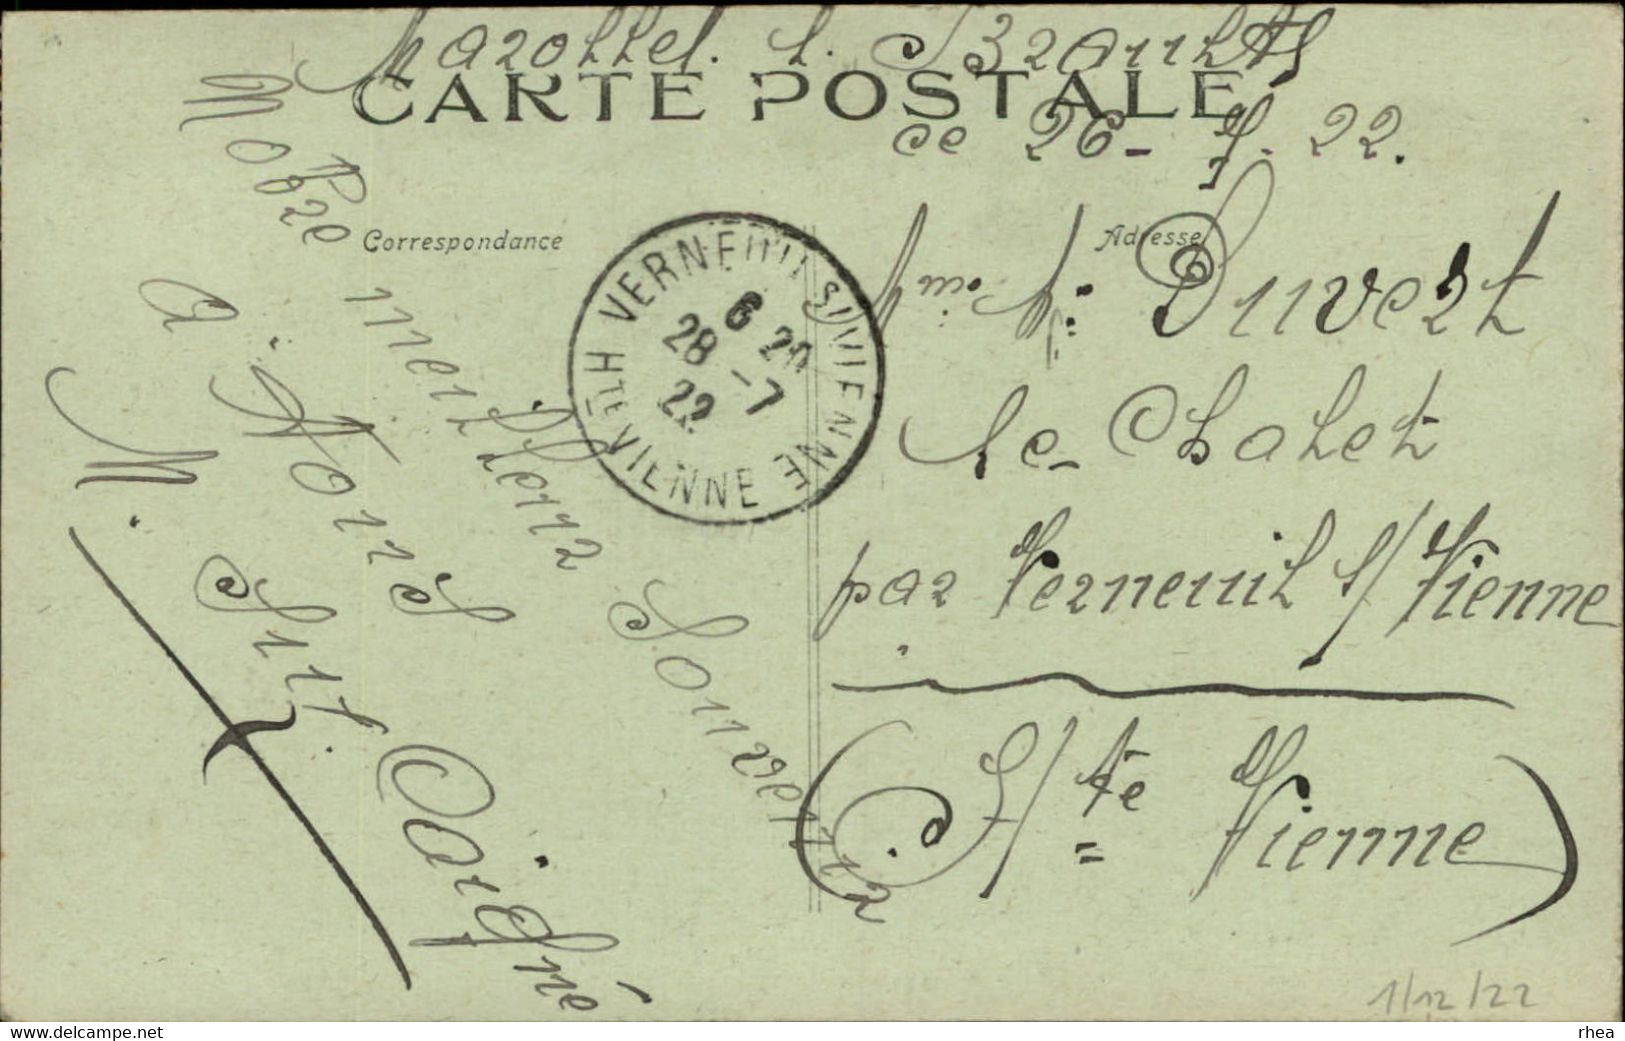 CARTE POSTALE
ce 26 - 7. 22.
Correspondance
Adresse
Notre meilleur Souvenir
a. Nous
M. Suz. Daigné
VERNEUIL S/VIENNE
6 20
28 -7
22
HTE VIENNE
Duvert
le Chalet
par Verneuil s/ Vienne
(H/te Vienne)
1/12/22
www.delcampe.net
rhea